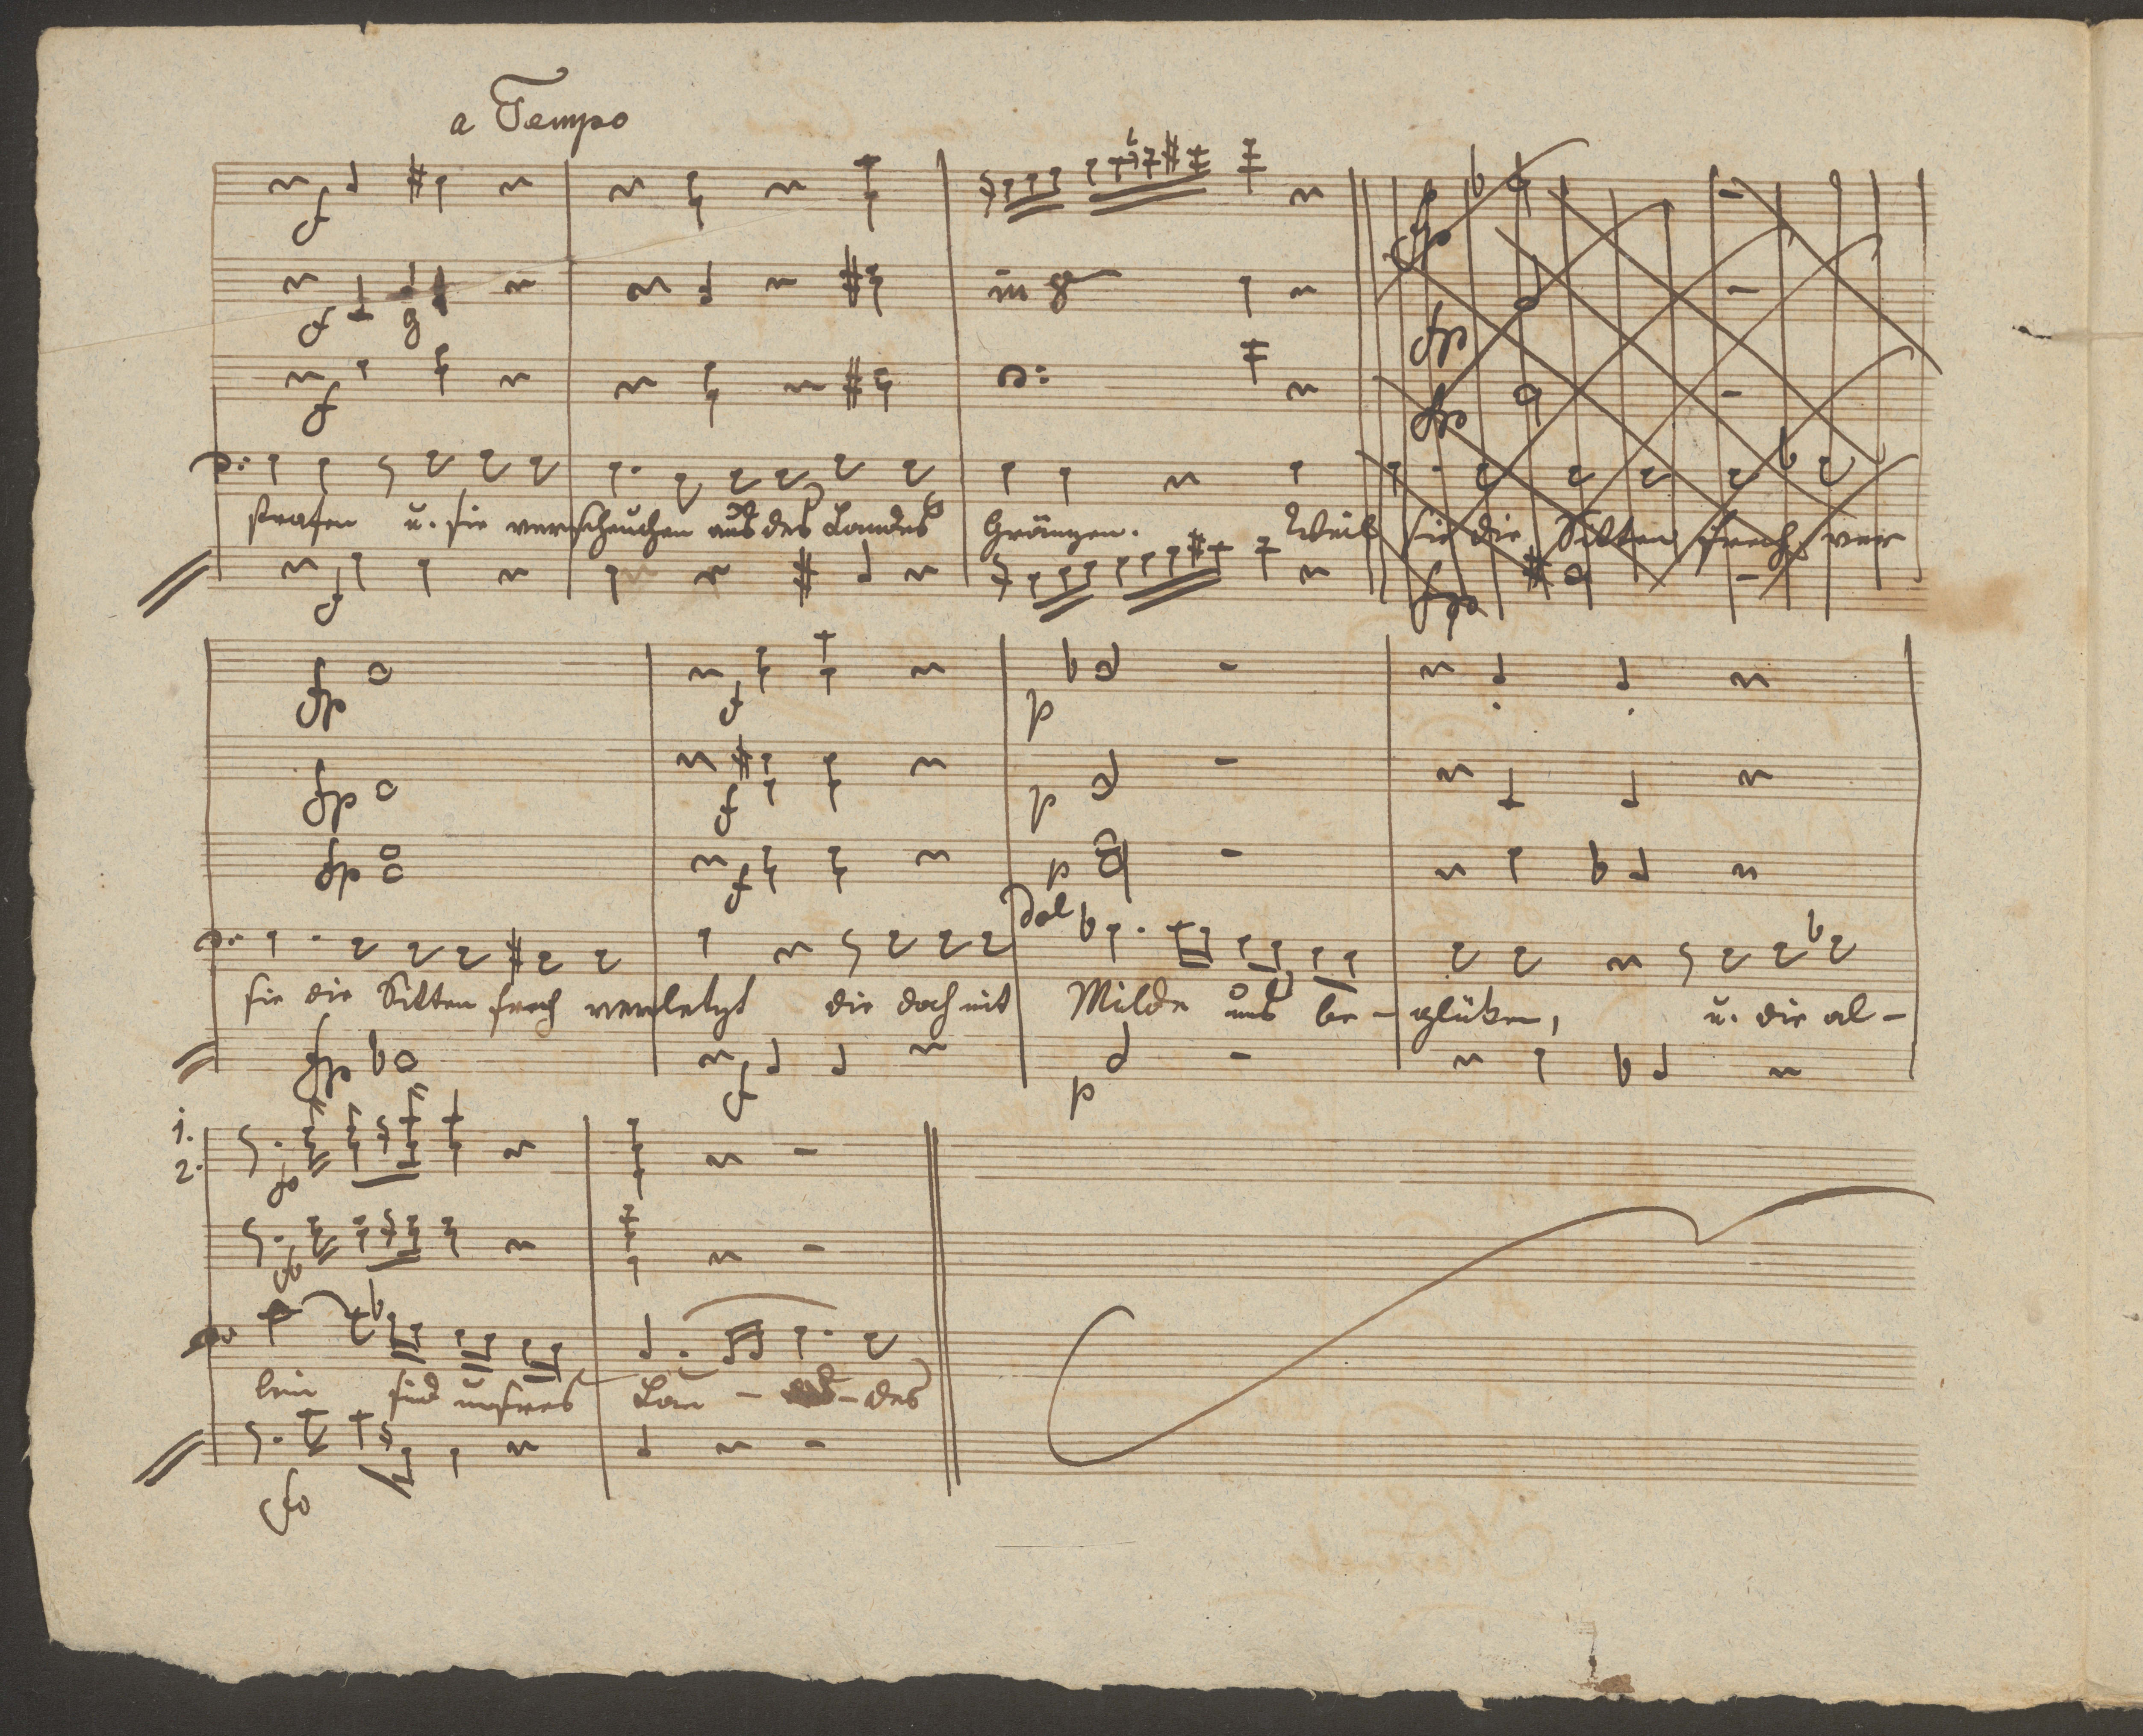 a Tempo
f
f g
in 8
f
strafen u. sie verscheuchen aus des Landes Gränzen. Weil sie die Sitten frech ver
f
fp
fp
fp
fp
fp f p
fp f p
fp f p
dol
sie die Sitten frech verletzt die doch mit Milde uns be - glüken, u. die al -
fp f p
1.
2.
fo
fo
lein sind unsres Lan - - des
fo